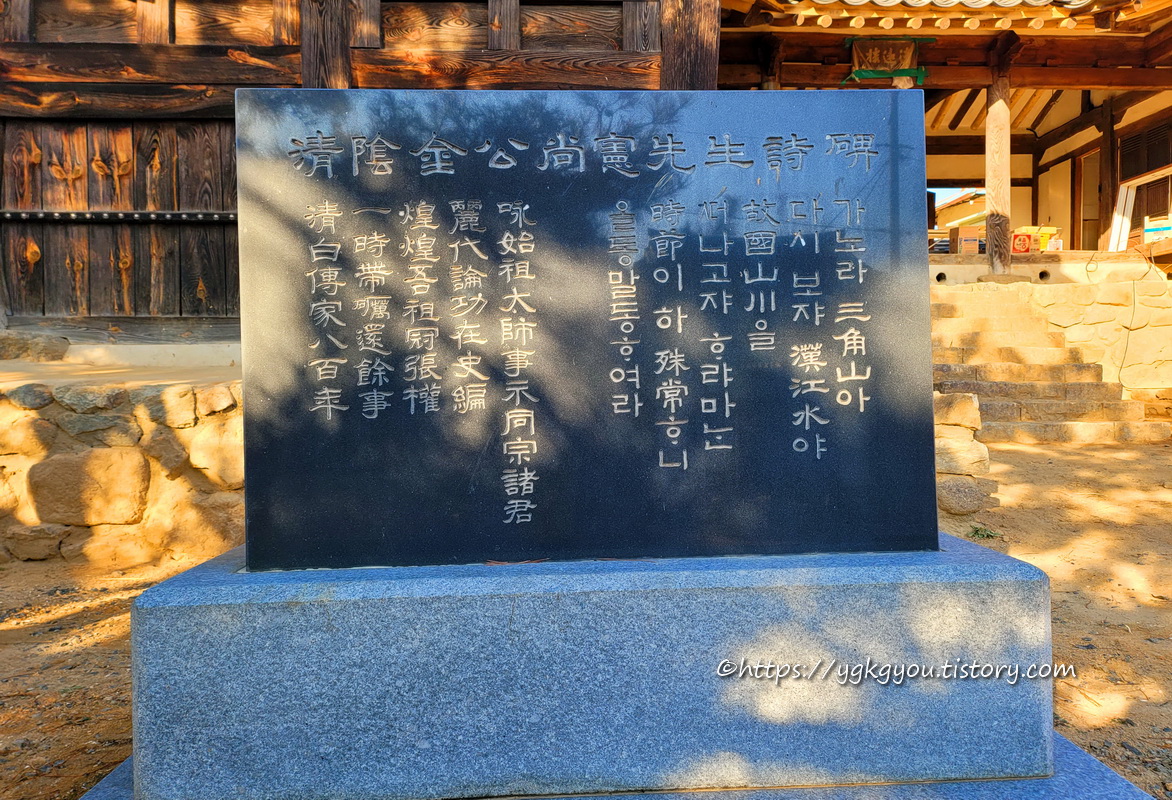 清陰金公尚憲先生詩碑
가노라 三角山아
다시 보쟈 漢江水야
故國山川을
ᄯᅥ나고쟈 ᄒᆞ랴마ᄂᆞᆫ
時節이 하 殊常ᄒᆞ니
올동말동ᄒᆞ여라
咏始祖太師事示同宗諸君
麗代論功在史編
煌煌吾祖冠張權
一時帶礪還餘事
清白傳家八百年
©https://ygkgyou.tistory.com